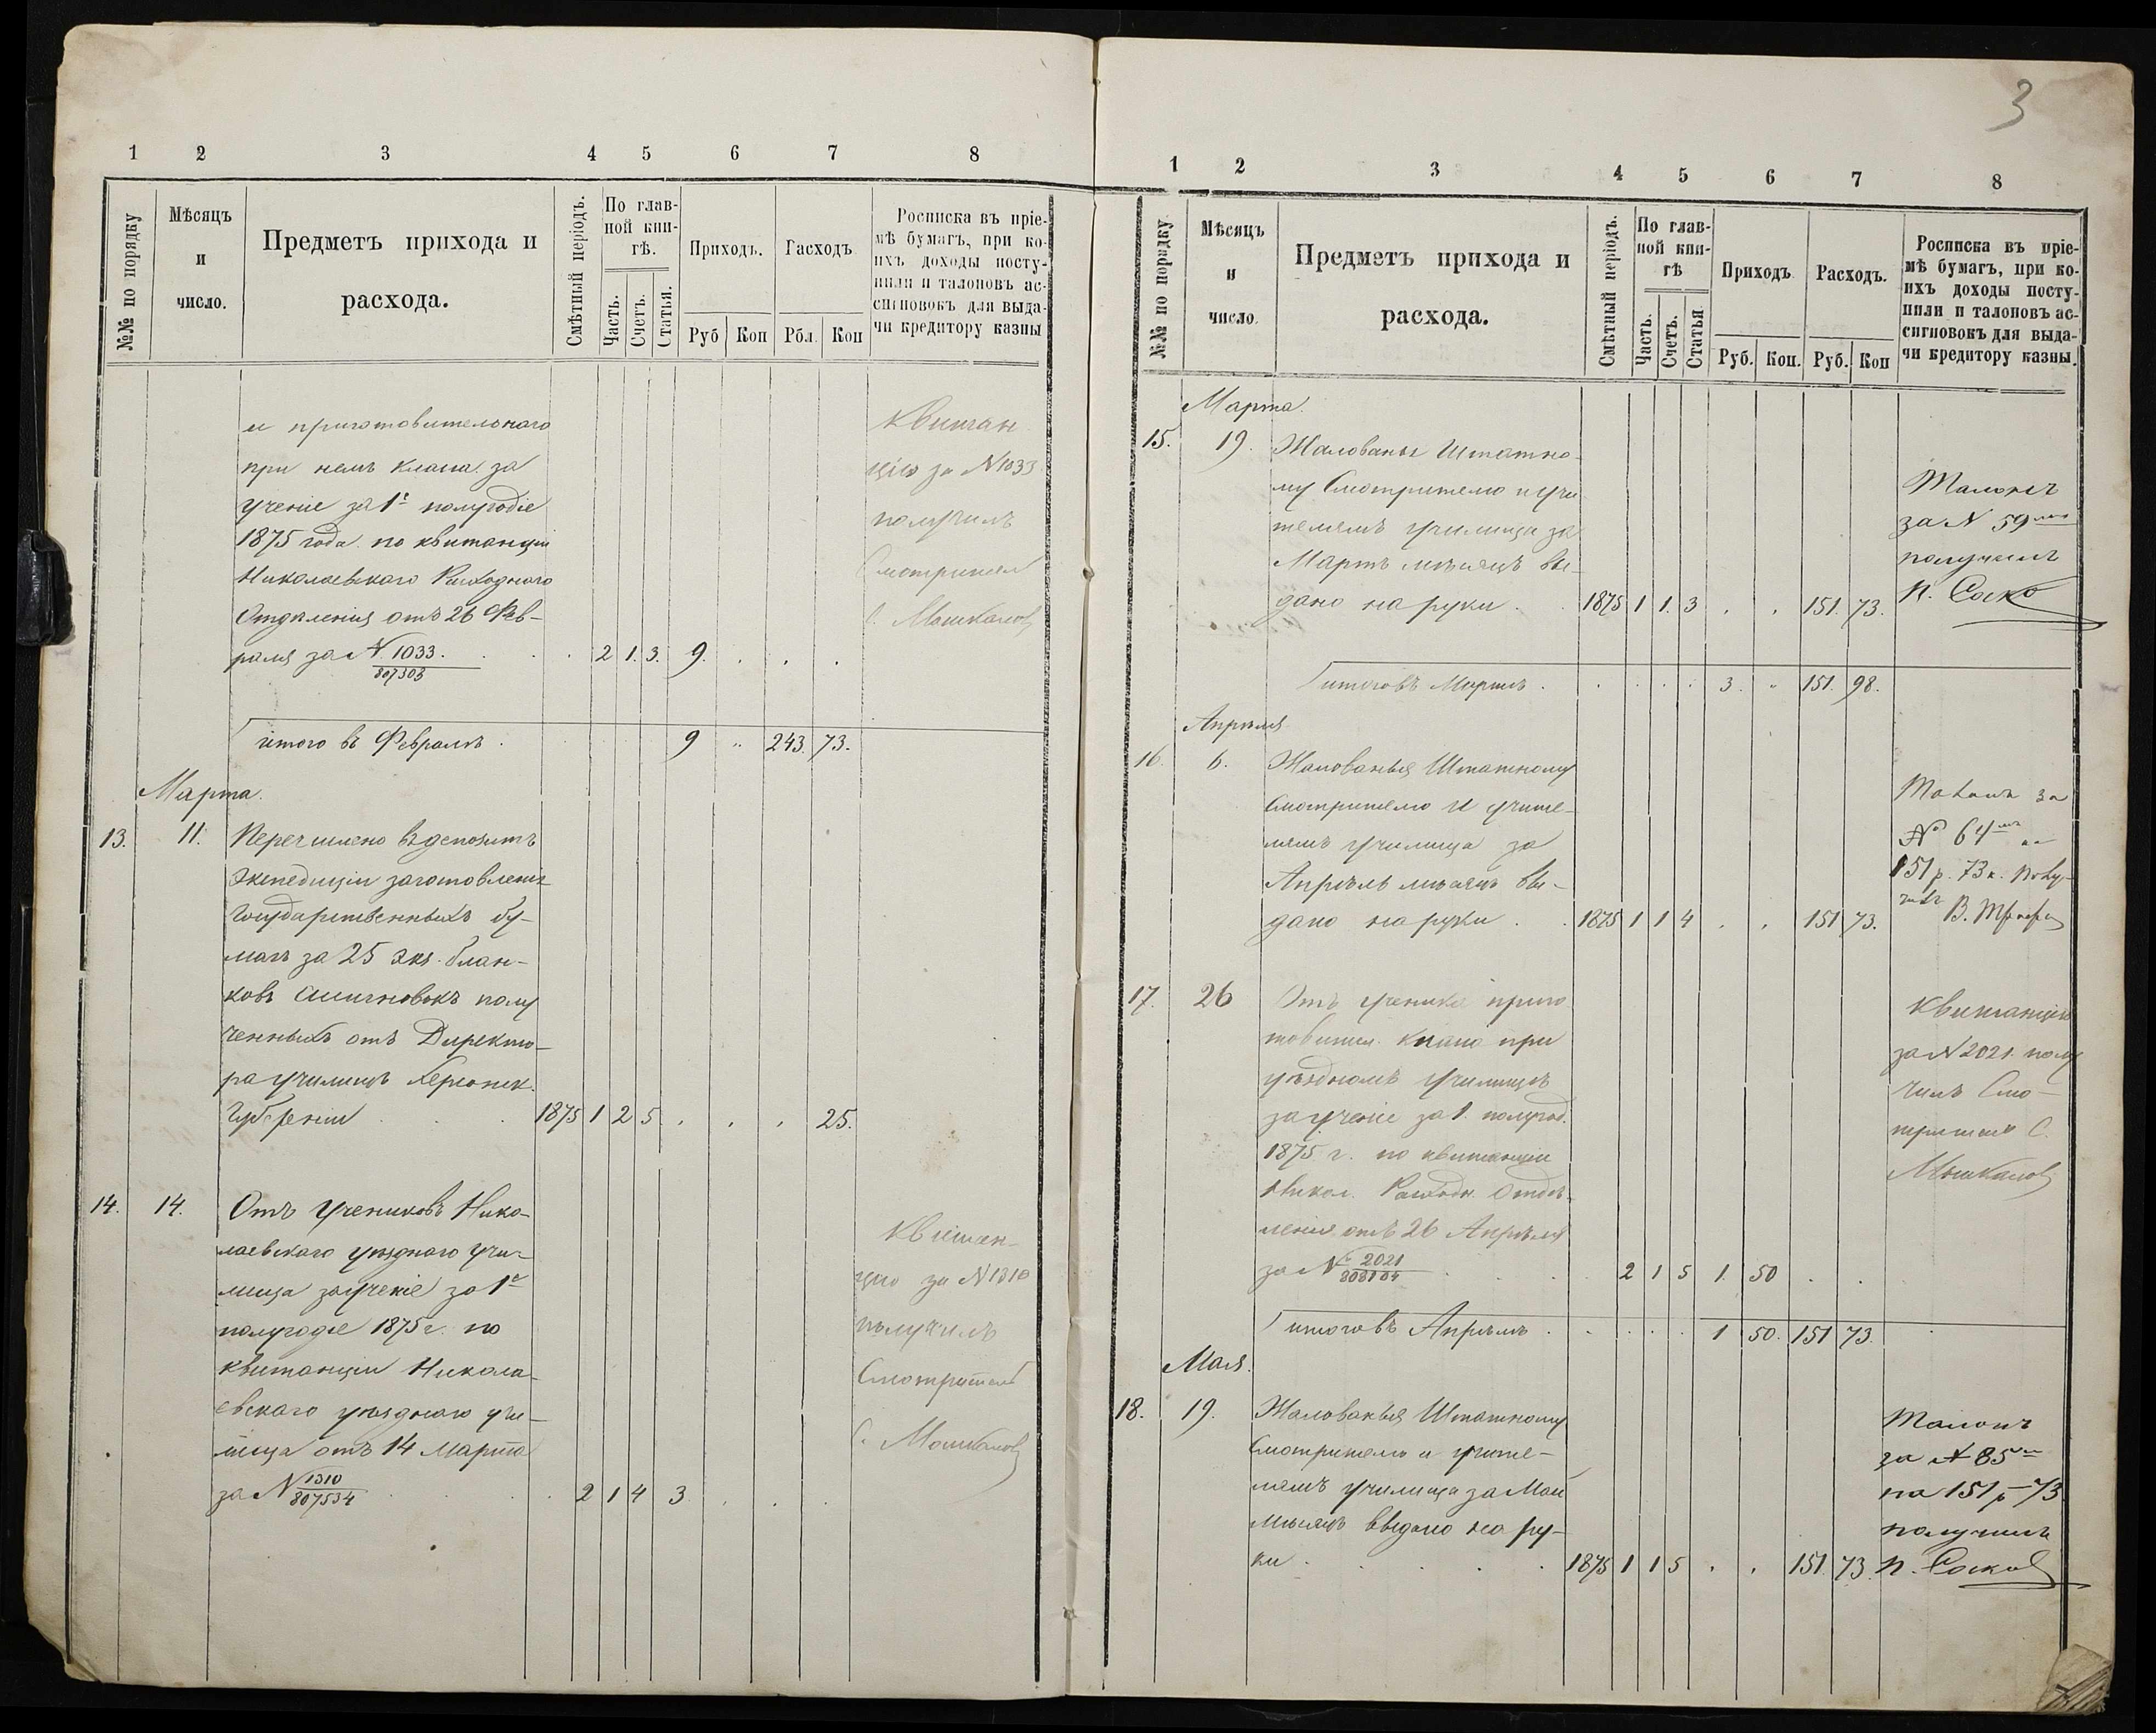 3
1 2 3 4 5 6 7 8
№№ по порядку
Мѣсяцъ и число.
Предметъ прихода и расхода.
Смѣтный періодъ.
По главной книгѣ.
Часть. Счетъ. Статья.
Приходъ.
Руб Коп
Расходъ
Рбл. Коп
Росписка въ пріе-
мѣ бумагъ, при ко-
ихъ доходы посту-
пили и талоновъ ас-
сигновокъ для выда-
чи кредитору казны
и приготовительнаго
при немъ класса за
ученіе за 1е полугодіе
1875 года по квитанціи
Николаевскаго Расходнаго
Отдѣленія отъ 26 Фев-
раля за № 1033. 2 1. 3. 9.
807303
Квитан
цію за N 1033
получилъ
Смотритель
С. Мошкалов
итого въ Февралѣ. 9 " 243. 73.
Марта.
13. 11. Перечислено въ депозитъ
Экспедиціи заготовленія
Государственныхъ бу-
магъ за 25 экз. блан-
ковъ ассигновокъ полу
ченныхъ отъ Директо-
ра училищъ Херсонск.
Губерніи 1875 1 2 5 25.
14. 14. Отъ учениковъ Нико-
лаевскаго уѣзднаго учи-
лища за ученіе за 1е
полугодіе 1875 г. по
квитанціи Никола-
евскаго уѣзднаго учи-
лища отъ 14 Марта
за N 1310 2 1 4 3
807534
Квитан-
цію за N 1310
получилъ
Смотритель
С. Мошкалов
1 2 3 4 5 6 7 8
№№ по порядку
Мѣсяцъ и число.
Предметъ прихода и расхода.
Смѣтный періодъ.
По главной книгѣ
Часть. Счетъ. Статья
Приходъ
Руб. Коп.
Расходъ.
Руб. Коп
Росписка въ пріе-
мѣ бумагъ, при ко-
ихъ доходы посту-
пили и талоновъ ас-
сигновокъ для выда-
чи кредитору казны.
Марта.
15. 19. Жалованья Штатно-
му Смотрителю и учи
телямъ училища за
Мартъ мѣсяцъ вы-
дано на руки. 1875 1 1. 3 151. 73.
Талонъ
за N 59
получилъ
итого въ Мартѣ. 3. " 151. 98.
Апрѣля
16. 6. Жалованья Штатному
Смотрителю и учите-
лямъ училища за
Апрѣль мѣсяцъ вы-
дано на руки. 1875 1 1 4 151 73.
Талонъ за
№ 64
151 р. 73 к. полу-
чилъ
17. 26 Отъ ученика приго
товител. класса при
уѣздномъ училищѣ
за ученіе за 1. полугод.
1875 г. по квитанціи
Никол. Расходн. Отдѣ-
ленія отъ 26 Апрѣля
за № 2021 2 1 5 1. 50
808104
Квитанцію
за N 2021. полу
чилъ Смо-
тритель С.
Мошкалов
итого въ Апрѣлѣ. 1 50. 151 73.
Мая.
18. 19. Жалованья Штатному
Смотрителю и учите-
лямъ училища за Май
мѣсяцъ выдано на ру-
ки. 1875 1 1 5 151. 73
Талонъ
за № 85
на 151 р - 73
получилъ